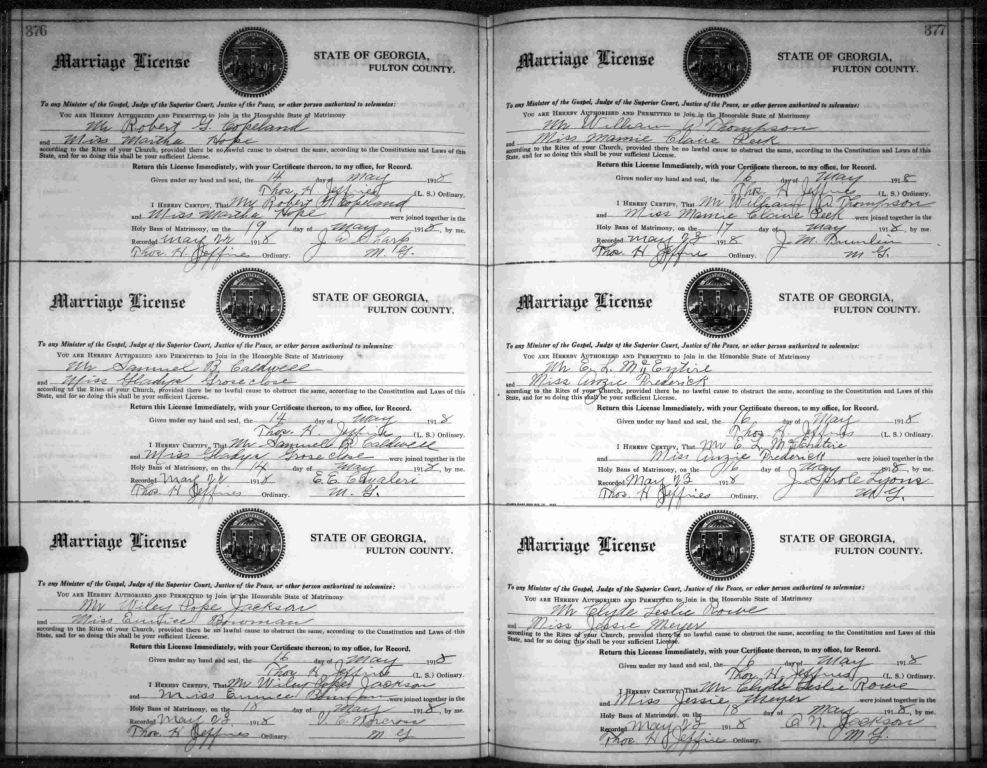 376
Marriage License
STATE OF GEORGIA,
FULTON COUNTY.
To any Minister of the Gospel, Judge of the Superior Court, Justice of the Peace, or other person authorized to solemnize:
YOU ARE HEREBY AUTHORIZED AND PERMITTED to Join in the Honorable State of Matrimony
Mr Robert G. Copeland
and Miss Martha Pope
according to the Rites of your Church, provided there be no lawful cause to obstruct the same, according to the Constitution and Laws of this
State, and for so doing this shall be your sufficient License.
Return this License Immediately, with your Certificate thereon, to my office, for Record.
Given under my hand and seal, the 14 day of May 1918
Thos. H. Jeffries (L. S.) Ordinary.
I HEREBY CERTIFY, That Mr Robert G Copeland
and Miss Martha Pope were joined together in the
Holy Bans of Matrimony, on the 19 day of May 1918, by me.
Recorded May 22 1918 J. W.
Thos. H. Jeffries Ordinary. M. G.
Marriage License
STATE OF GEORGIA,
FULTON COUNTY.
To any Minister of the Gospel, Judge of the Superior Court, Justice of the Peace, or other person authorized to solemnize:
YOU ARE HEREBY AUTHORIZED AND PERMITTED to Join in the Honorable State of Matrimony
Mr Samuel B. Caldwell
and Miss Gladys Groseclose
according to the Rites of your Church, provided there be no lawful cause to obstruct the same, according to the Constitution and Laws of this
State, and for so doing this shall be your sufficient License.
Return this License Immediately, with your Certificate thereon, to my office, for Record.
Given under my hand and seal, the 14 day of May 1918
Thos. H. Jeffries (L. S.) Ordinary.
I HEREBY CERTIFY, That Mr Samuell B. Caldwell
and Miss Gladys Groseclose were joined together in the
Holy Bans of Matrimony, on the 14 day of May 1918, by me.
Recorded May 22 1918 E. E.
Thos. H Jeffries Ordinary. M. G.
Marriage License
STATE OF GEORGIA,
FULTON COUNTY.
To any Minister of the Gospel, Judge of the Superior Court, Justice of the Peace, or other person authorized to solemnize:
YOU ARE HEREBY AUTHORIZED AND PERMITTED to Join in the Honorable State of Matrimony
Mr Wiley Pope Jackson
and Miss Eunice Bowman
according to the Rites of your Church, provided there be no lawful cause to obstruct the same, according to the Constitution and Laws of this
State, and for so doing this shall be your sufficient License.
Return this License Immediately, with your Certificate thereon, to my office, for Record.
Given under my hand and seal, the 16 day of May 1918
Thos H. Jeffries (L. S.) Ordinary.
I HEREBY CERTIFY, That Mr Wiley Pope Jackson
and Miss Eunice Bowman were joined together in the
Holy Bans of Matrimony, on the 18 day of May 1918, by me.
Recorded May 23 1918 V. C. Norcross
Thos. H Jeffries Ordinary. M G
377
Marriage License
STATE OF GEORGIA,
FULTON COUNTY.
To any Minister of the Gospel, Judge of the Superior Court, Justice of the Peace, or other person authorized to solemnize:
YOU ARE HEREBY AUTHORIZED AND PERMITTED to Join in the Honorable State of Matrimony
Mr William W Thompson
and Miss Mamie Claire Peek
according to the Rites of your Church, provided there be no lawful cause to obstruct the same, according to the Constitution and Laws of this
State, and for so doing this shall be your sufficient License.
Return this License Immediately, with your Certificate thereon, to my office, for Record.
Given under my hand and seal, the 16 day of May 1918
Thos. H Jeffries (L. S.) Ordinary.
I HEREBY CERTIFY, That Mr William W Thompson
and Miss Mamie Claire Peek were joined together in the
Holy Bans of Matrimony, on the 17 day of May 1918, by me.
Recorded May 23 1918 J. M.
Thos. H Jeffries Ordinary. M G.
Marriage License
STATE OF GEORGIA,
FULTON COUNTY.
To any Minister of the Gospel, Judge of the Superior Court, Justice of the Peace, or other person authorized to solemnize:
YOU ARE HEREBY AUTHORIZED AND PERMITTED to Join in the Honorable State of Matrimony
Mr E. L. McEntire
and Miss Anzie Frederick
according to the Rites of your Church, provided there be no lawful cause to obstruct the same, according to the Constitution and Laws of this
State, and for so doing this shall be your sufficient License.
Return this License Immediately, with your Certificate thereon, to my office, for Record.
Given under my hand and seal, the 16 day of May 1918
Thos H Jeffries (L. S.) Ordinary.
I HEREBY CERTIFY, That Mr E. L. McEntire
and Miss Anzie Frederick were joined together in the
Holy Bans of Matrimony, on the 16 day of May 1918, by me.
Recorded May 23 1918 J. Sprole Lyons
Thos. H Jeffries Ordinary. M G.
Marriage License
STATE OF GEORGIA,
FULTON COUNTY.
To any Minister of the Gospel, Judge of the Superior Court, Justice of the Peace, or other person authorized to solemnize:
YOU ARE HEREBY AUTHORIZED AND PERMITTED to Join in the Honorable State of Matrimony
Mr Clyde Leslie Rowe
and Miss Jessie Meyer
according to the Rites of your Church, provided there be no lawful cause to obstruct the same, according to the Constitution and Laws of this
State, and for so doing this shall be your sufficient License.
Return this License Immediately, with your Certificate thereon, to my office, for Record.
Given under my hand and seal, the 16 day of May 1918
Thos H. Jeffries (L. S.) Ordinary.
I HEREBY CERTIFY, That Mr Clyde Leslie Rowe
and Miss Jessie Meyer were joined together in the
Holy Bans of Matrimony, on the 18 day of May 1918, by me.
Recorded May 23 1918 A. N. Jackson
Thos. H Jeffries Ordinary. M G.